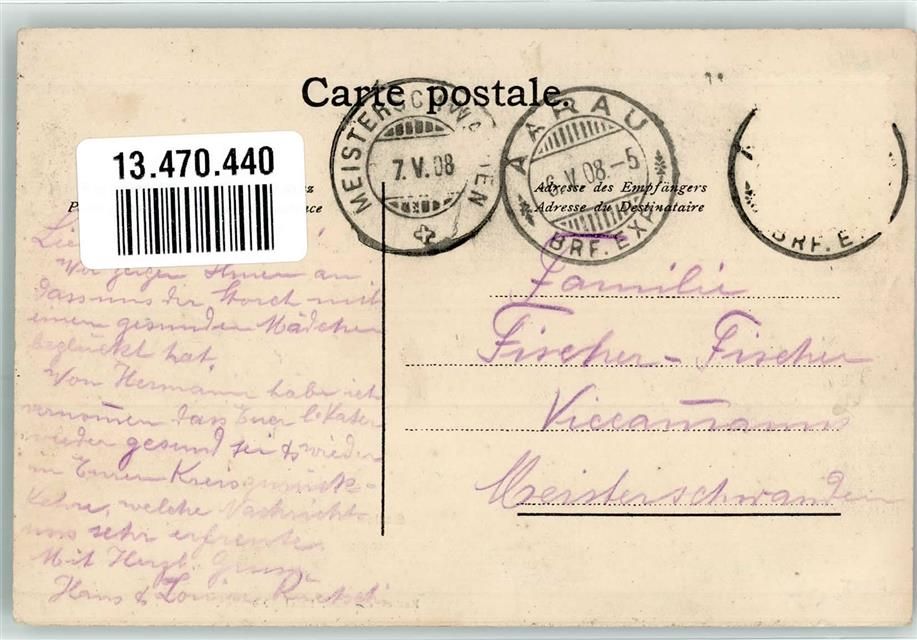 Carte postale.
13.470.440
MEISTERSCHWANDEN
7.V.08
AARAU
6.V.08.-5
BRF. EXP.
BRF. E.
Adresse des Empfängers
Adresse du Destinataire
Wir zeigen Ihnen an
dass uns der Storch mit
einem gesunden Mädchen
beglückt hat.
Von Hermann habe ich
vernom̄en dass Euer l. Vater
wieder gesund sei & wieder
in Euren Kreis zurück-
kehre, welche Nachricht
uns sehr erfreute.
Mit Herzl. Gruss
Hans & Rüetschi
Familie
Fischer - Fischer
Viceam̄anns
Meisterschwanden